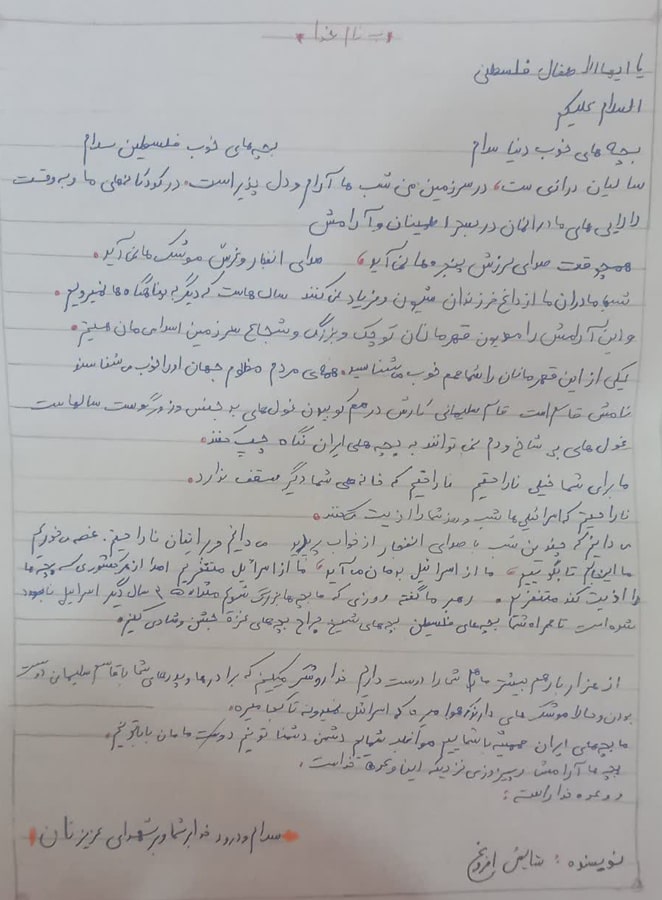 به نام خدا
یا ایها الاطفال فلسطین
السلام علیکم
بچه های خوب دنیا سلام بچه های خوب فلسطین سلام
سالیان درازی ست، در سرزمین من شب ها آرام و دل پذیر است. در کودکانه های ما و به وقت
لالایی های مادرانمان در بستر اطمینان و آرامش
هیچ وقت صدای لرزش پنجره ها نمی آید، صدای انفجار و غرش موشک ها نمی آید.
شبها مادران ما از داغ فرزندان شیون و فریاد نمی کنند سال هاست که دیگر به پناهگاه ها نمیرویم.
و این آرامش را مدیون قهرمانان کوچک و بزرگ و شجاع سرزمین اسلامی مان هستیم.
یکی از این قهرمانان را شما هم خوب می شناسید. همه ی مردم مظلوم جهان او را خوب می شناسند
نامش قاسم است قاسم سلیمانی کارش در هم کوبیدن غول های بد جنس و زورگوست سالهاست
غول های بی شاخ و دم نمی توانند به بچه های ایران نگاه چپ کنند.
ما برای شما خیلی ناراحتیم ناراحتیم که خانه های شما دیگر سقف ندارد.
ناراحتیم که اسرائیلی ها شب و روز شما را اذیت میکنند.
می دانیم که چندین شب با صدای انفجار از خواب می دانیم ناراحتیم. غصه می خوریم
ما اینجاییم تا بگوییم، ما از اسرائیل بدمان می آید، ما از اسرائیل متنفریم اصلا از هر کشوری که بچه ها
را اذیت کند متنفریم. رهبر ما گفته روزی که ما بچه ها بزرگ شویم مثلا سال دیگر اسرائیل نابود
شده است تا همراه شما بچه های فلسطین بچه های شیخ جراح بچه های غزه جشن و شادی کنیم.
از هزار بار هم بیشتر ما شما را دوست داریم خدا رو شکر میکنیم که برادرها و پدرهای شما با قاسم سلیمانی دوست
بودن و حالا موشک های دارند که هوا میره که اسرائیل نمیدونه تا کجا میره.
ما بچه های ایران همیشه با شماییم مواظب شماییم دشمن دشمنا تونیم دوست مامان باباتونیم.
بچه ها آرامش و پیروزی نزدیکه این وعده ی خداست.
و وعده خدا راسته.
سلام و درود خدا بر شما و بر شهدای عزیزتان
نویسنده: ستایش